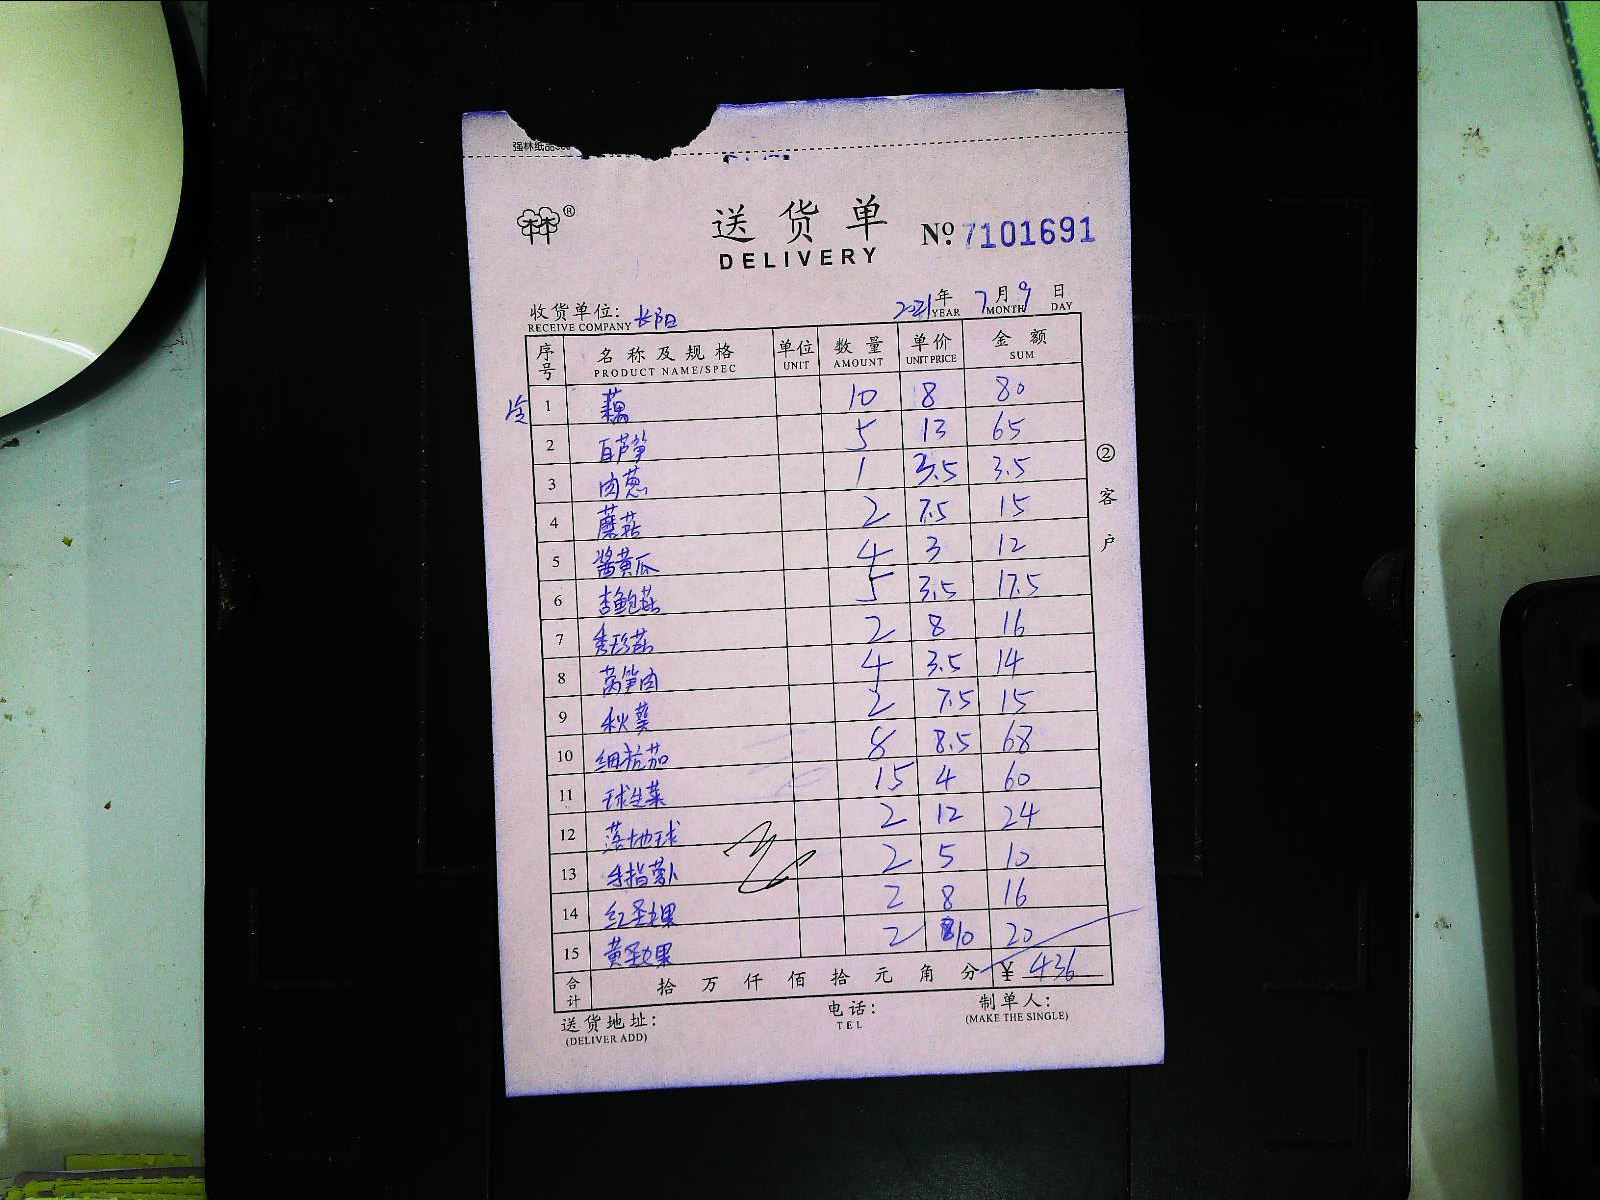 强林纸品
®
送货单
DELIVERY
Nº. 7101691
收货单位: 长阳
RECEIVE COMPANY
2021年 7月 9日
YEAR MONTH DAY
序号 名称及规格 单位 数量 单价 金额
PRODUCT NAME/SPEC UNIT AMOUNT UNIT PRICE SUM
1 藕 10 8 80
2 百芦笋 5 13 65
3 肉葱 1 3.5 3.5
4 蘑菇 2 7.5 15
5 酱黄瓜 4 3 12
6 杏鲍菇 5 3.5 17.5
7 秀珍菇 2 8 16
8 莴笋肉 4 3.5 14
9 秋葵 2 7.5 15
10 细杭茄 8 8.5 68
11 球生菜 15 4 60
12 落地球 2 12 24
13 手指萝卜 2 5 10
14 红圣女果 2 8 16
15 黄圣女果 2 10 20
合计 拾 万 仟 佰 拾 元 角 分 ¥ 436
②客户
送货地址: 电话: 制单人:
(DELIVER ADD) TEL (MAKE THE SINGLE)